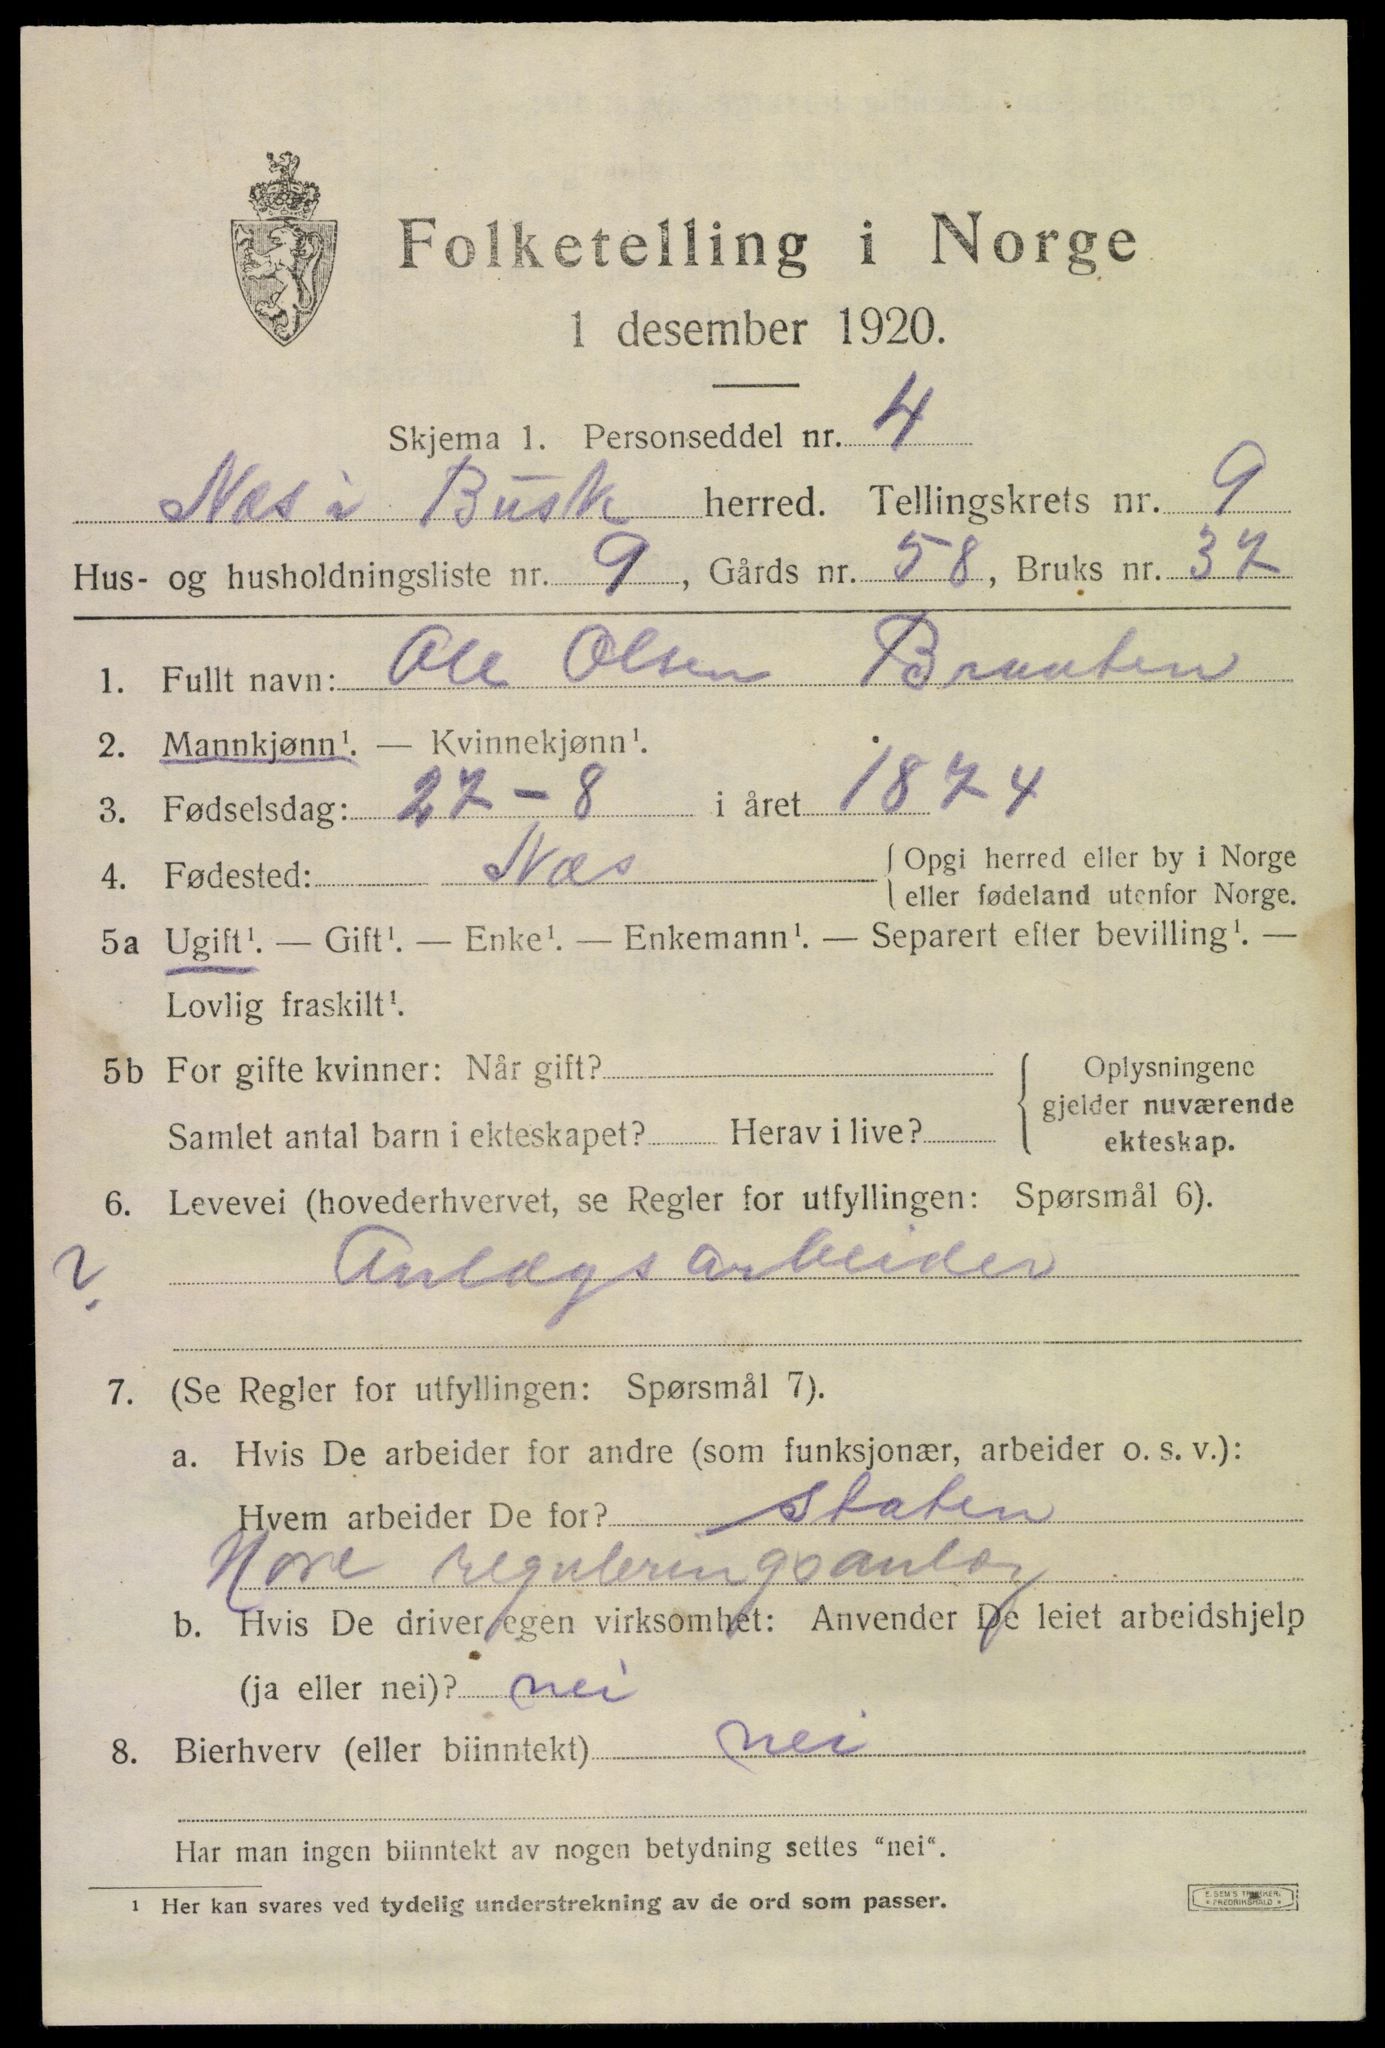 Folketelling i Norge
1 desember 1920.
Skjema 1. Personseddel nr. 4
Næs i Busk herred. Tellingskrets nr. 9
Hus- og husholdningsliste nr. 9, Gårds nr. 58, Bruks nr. 37
1. Fullt navn: Ole Olsen Braaten
2. Mannkjønn¹. — Kvinnekjønn¹.
3. Fødselsdag: 27 - 8 i året 1874
4. Fødested: Næs { Opgi herred eller by i Norge
eller fødeland utenfor Norge.
5a Ugift¹. — Gift¹. — Enke¹. — Enkemann¹. — Separert efter bevilling¹. —
Lovlig fraskilt¹.
5b For gifte kvinner: Når gift?
Samlet antal barn i ekteskapet? Herav i live?
Oplysningene
gjelder nuværende
ekteskap.
6. Levevei (hovederhvervet, se Regler for utfyllingen: Spørsmål 6).
Anlægsarbeider
7. (Se Regler for utfyllingen: Spørsmål 7).
a. Hvis De arbeider for andre (som funksjonær, arbeider o. s. v.):
Hvem arbeider De for? Staten
Nore reguleringsanlæg
b. Hvis De driver egen virksomhet: Anvender De leiet arbeidshjelp
(ja eller nei)? nei
8. Bierhverv (eller biinntekt) nei
Har man ingen biinntekt av nogen betydning settes "nei".
¹ Her kan svares ved tydelig understrekning av de ord som passer.
E. SEM'S TRYKKERI.
* FREDRIKSHALD *